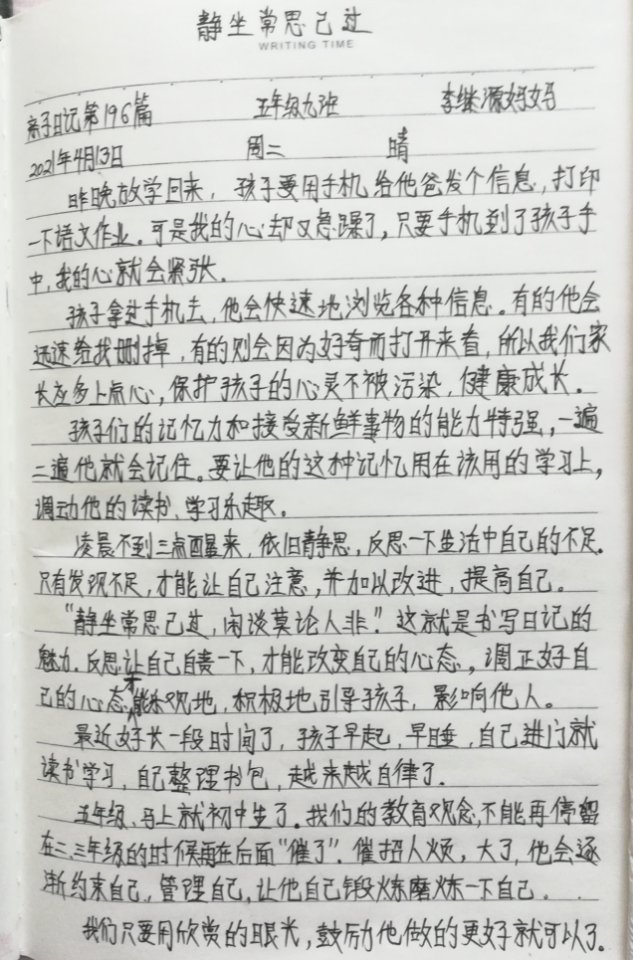 静坐常思己过
WRITING TIME
亲子日记第196篇 五年级九班 李继源妈妈
2021年4月13日 周二 晴
昨晚放学回来，孩子要用手机给他爸发个信息，打印
一下语文作业。可是我的心却又急躁了，只要手机到了孩子手
中，我的心就会紧张。
孩子拿过手机去，他会快速地浏览各种信息。有的他会
迅速给我删掉，有的则会因为好奇而打开来看，所以我们家
长应多上点心，保护孩子的心灵不被污染，健康成长。
孩子们的记忆力和接受新鲜事物的能力特强，一遍
二遍他就会记住。要让他的这种记忆用在该用的学习上，
调动他的读书、学习乐趣。
凌晨不到三点醒来，依旧静思，反思一下生活中自己的不足。
只有发现不足，才能让自己注意，并加以改进，提高自己。
“静坐常思己过，闲谈莫论人非”。这就是书写日记的
魅力。反思让自己自责一下，才能改变自己的心态，调正好自
己的心态，才能乐观地，积极地引导孩子，影响他人。
最近好长一段时间了，孩子早起，早睡，自己进门就
读书学习，自己整理书包，越来越自律了。
五年级、马上就初中生了。我们的教育观念，不能再停留
在二、三年级的时候再在后面“催了”。催招人烦，大了，他会逐
渐约束自己，管理自己，让他自己锻炼磨炼一下自己。
我们只要用欣赏的眼光，鼓励他做的更好就可以了。